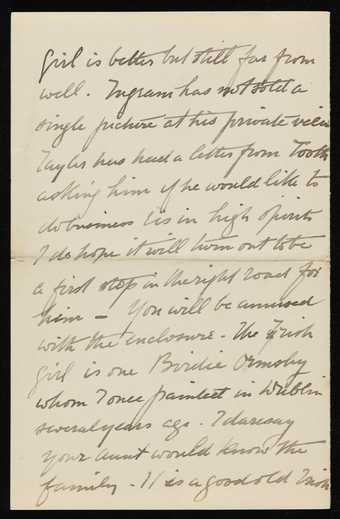 girl is better but still far from
well. Ingram has not sold a
single picture at his private view
Taylor has had a letter from Tooth
asking him if he would like to
do business & is in high spirits
I do hope it will turn out to be
a first step in the right road for
him — You will be amused
with the enclosure - The Irish
girl is one Birdie Ormsby
whom I once painted in Dublin
several years ago. I daresay
your aunt would know the
family - It is a good old Irish